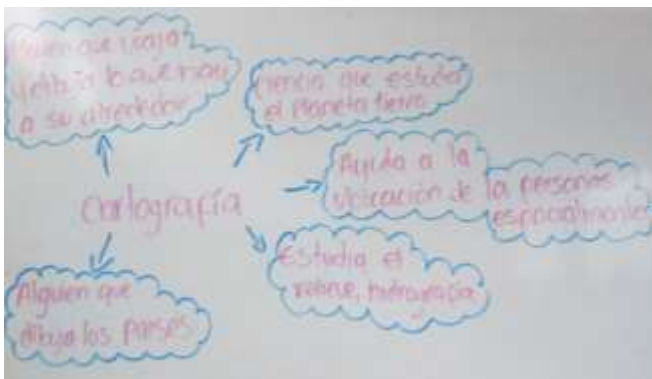 Alguien que viaja
y dibuja lo que hay
a su alrededor
Ciencia que estudia
el planeta tierra
Ayuda a la
ubicación de la personas
espacialmente
Cartografía
Estudia el
relieve, hidrografía
y
Alguien que
dibuja los Países